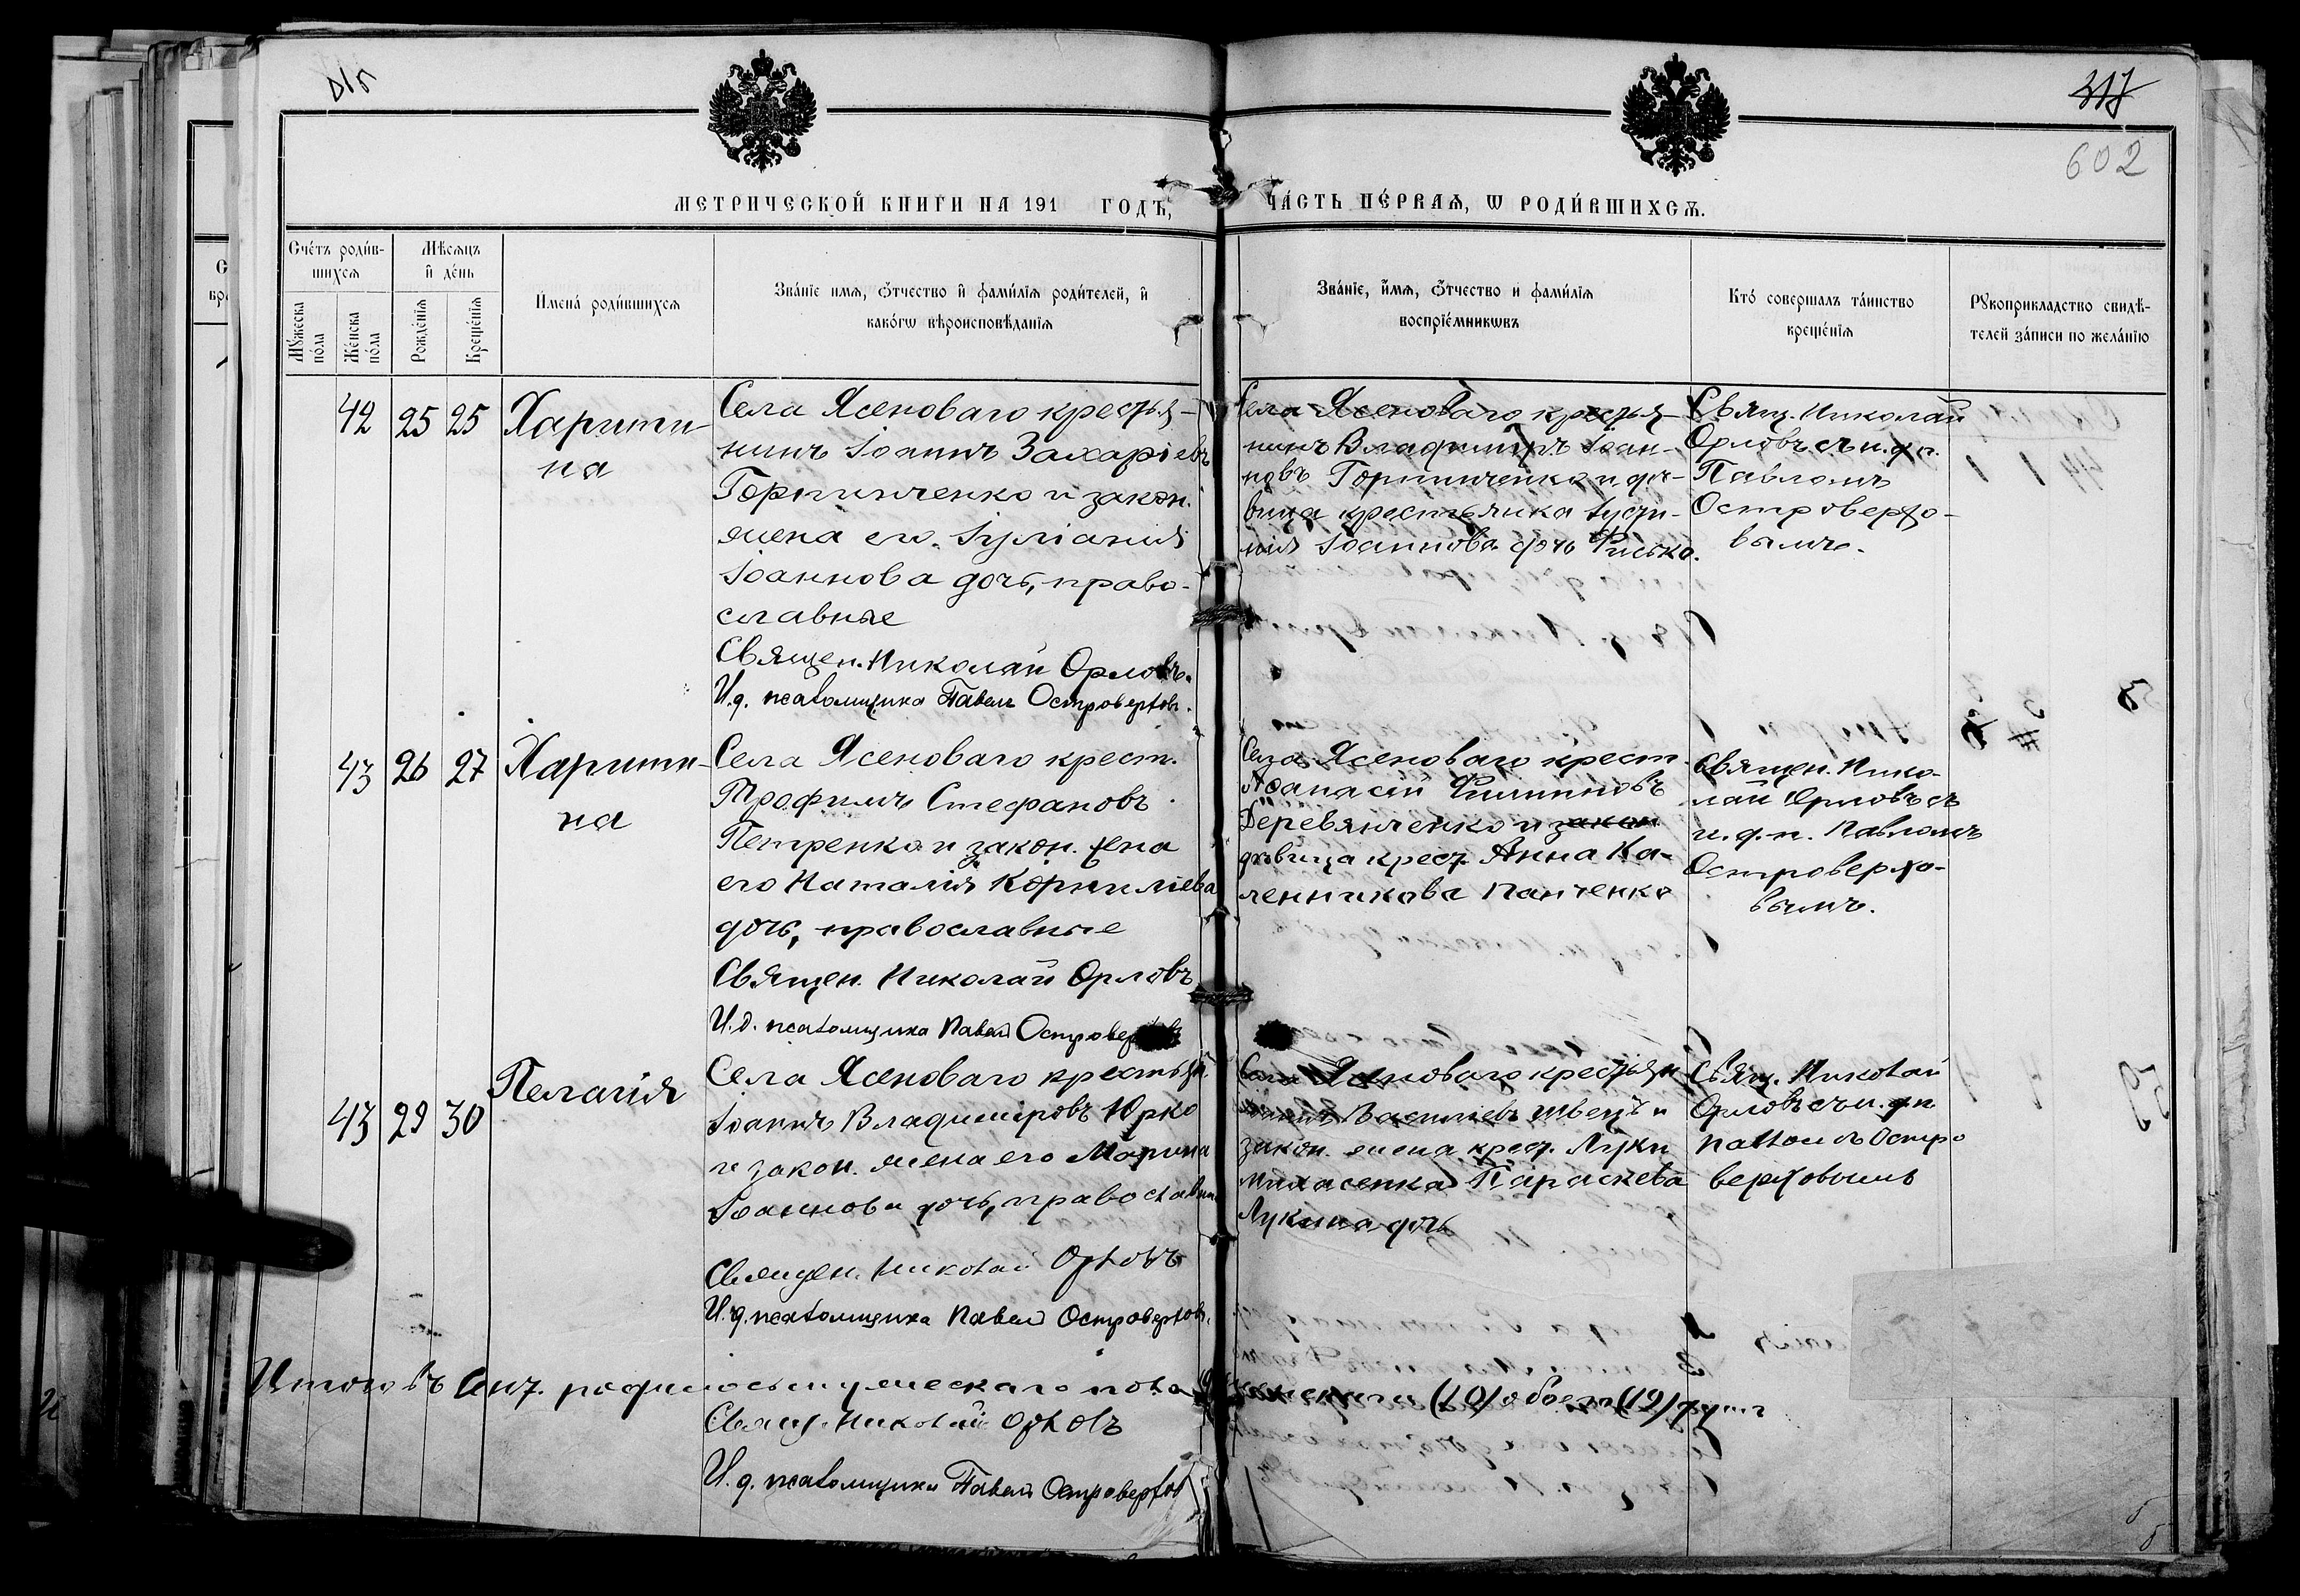 317
602
МЕТРИЧЕСКОЙ КНИГИ НА 191 ГОДЪ,
ЧАСТЬ ПЕРВАЯ, Ѡ РОДИВШИХСЯ.
Счетъ родив-
шихся
Мѣсяцъ
и день
Мужеска
пола
Женска
пола
Рожденія
Крещенія
Имена родившихся
Званіе имя, отчество и фамилія родителей, и
какогѡ вѣроисповѣданія
Званіе, имя, отчество и фамилія
воспріемникѡвъ
Кто совершалъ таинство
крещенія
Рукоприкладство свидѣ-
телей записи по желанію
42 25 25 Харити-
на
Села Ясеноваго крестья-
нинъ Іоаннъ Захаріевъ
Горпинченко и закон.
жена его Іуліанія
Іоаннова дочь, право-
славные
Священ. Николай Орловъ.
И.д. псаломщика Павелъ Островерховъ.
Села Ясеноваго крестья-
нинъ Владиміръ Іоан-
новъ Горпинченко и дѣ-
вица крестьянка Іусти-
нія Іоаннова дочь Фисько.
Свящ. Николай
Орловъ съ и.д.п.
Павломъ
Островерхо-
вымъ.
43 26 27 Харити-
на
Села Ясеноваго крест.
Трофимъ Стефановъ
Петренко и закон. жена
его Наталія Корниліева
дочь, православные
Священ. Николай Орловъ
И.д. псаломщика Павелъ Островерховъ
Села Ясеноваго крест.
Аѳанасій Филипповъ
Деревянченко и закон
дѣвица крест. Анна Ка-
ленникова Панченко
Священ. Нико-
лай Орловъ съ
и.д.п. Павломъ
Островерхо-
вымъ.
43 29 30 Пелагія
Села Ясеноваго крестьян.
Іоаннъ Владиміровъ Юрко
и закон. жена его Марина
Іоаннова дочь, православные
Священ. Николай Орловъ
И.д. псаломщика Павелъ Островерховъ.
Села Ясеноваго крестьян
Василіевъ Швецъ и
закон. жена крест. Луки
Параскева
Лукина дочь
Свящ. Николай
Орловъ съ и.д.п
Павломъ Остро
верховымъ
Итого въ Сент. родилось мужескаго пола женскаго (10) обоего (19) душъ
Свящ. Николай Орловъ
И.д. псаломщика Павелъ Островерховъ